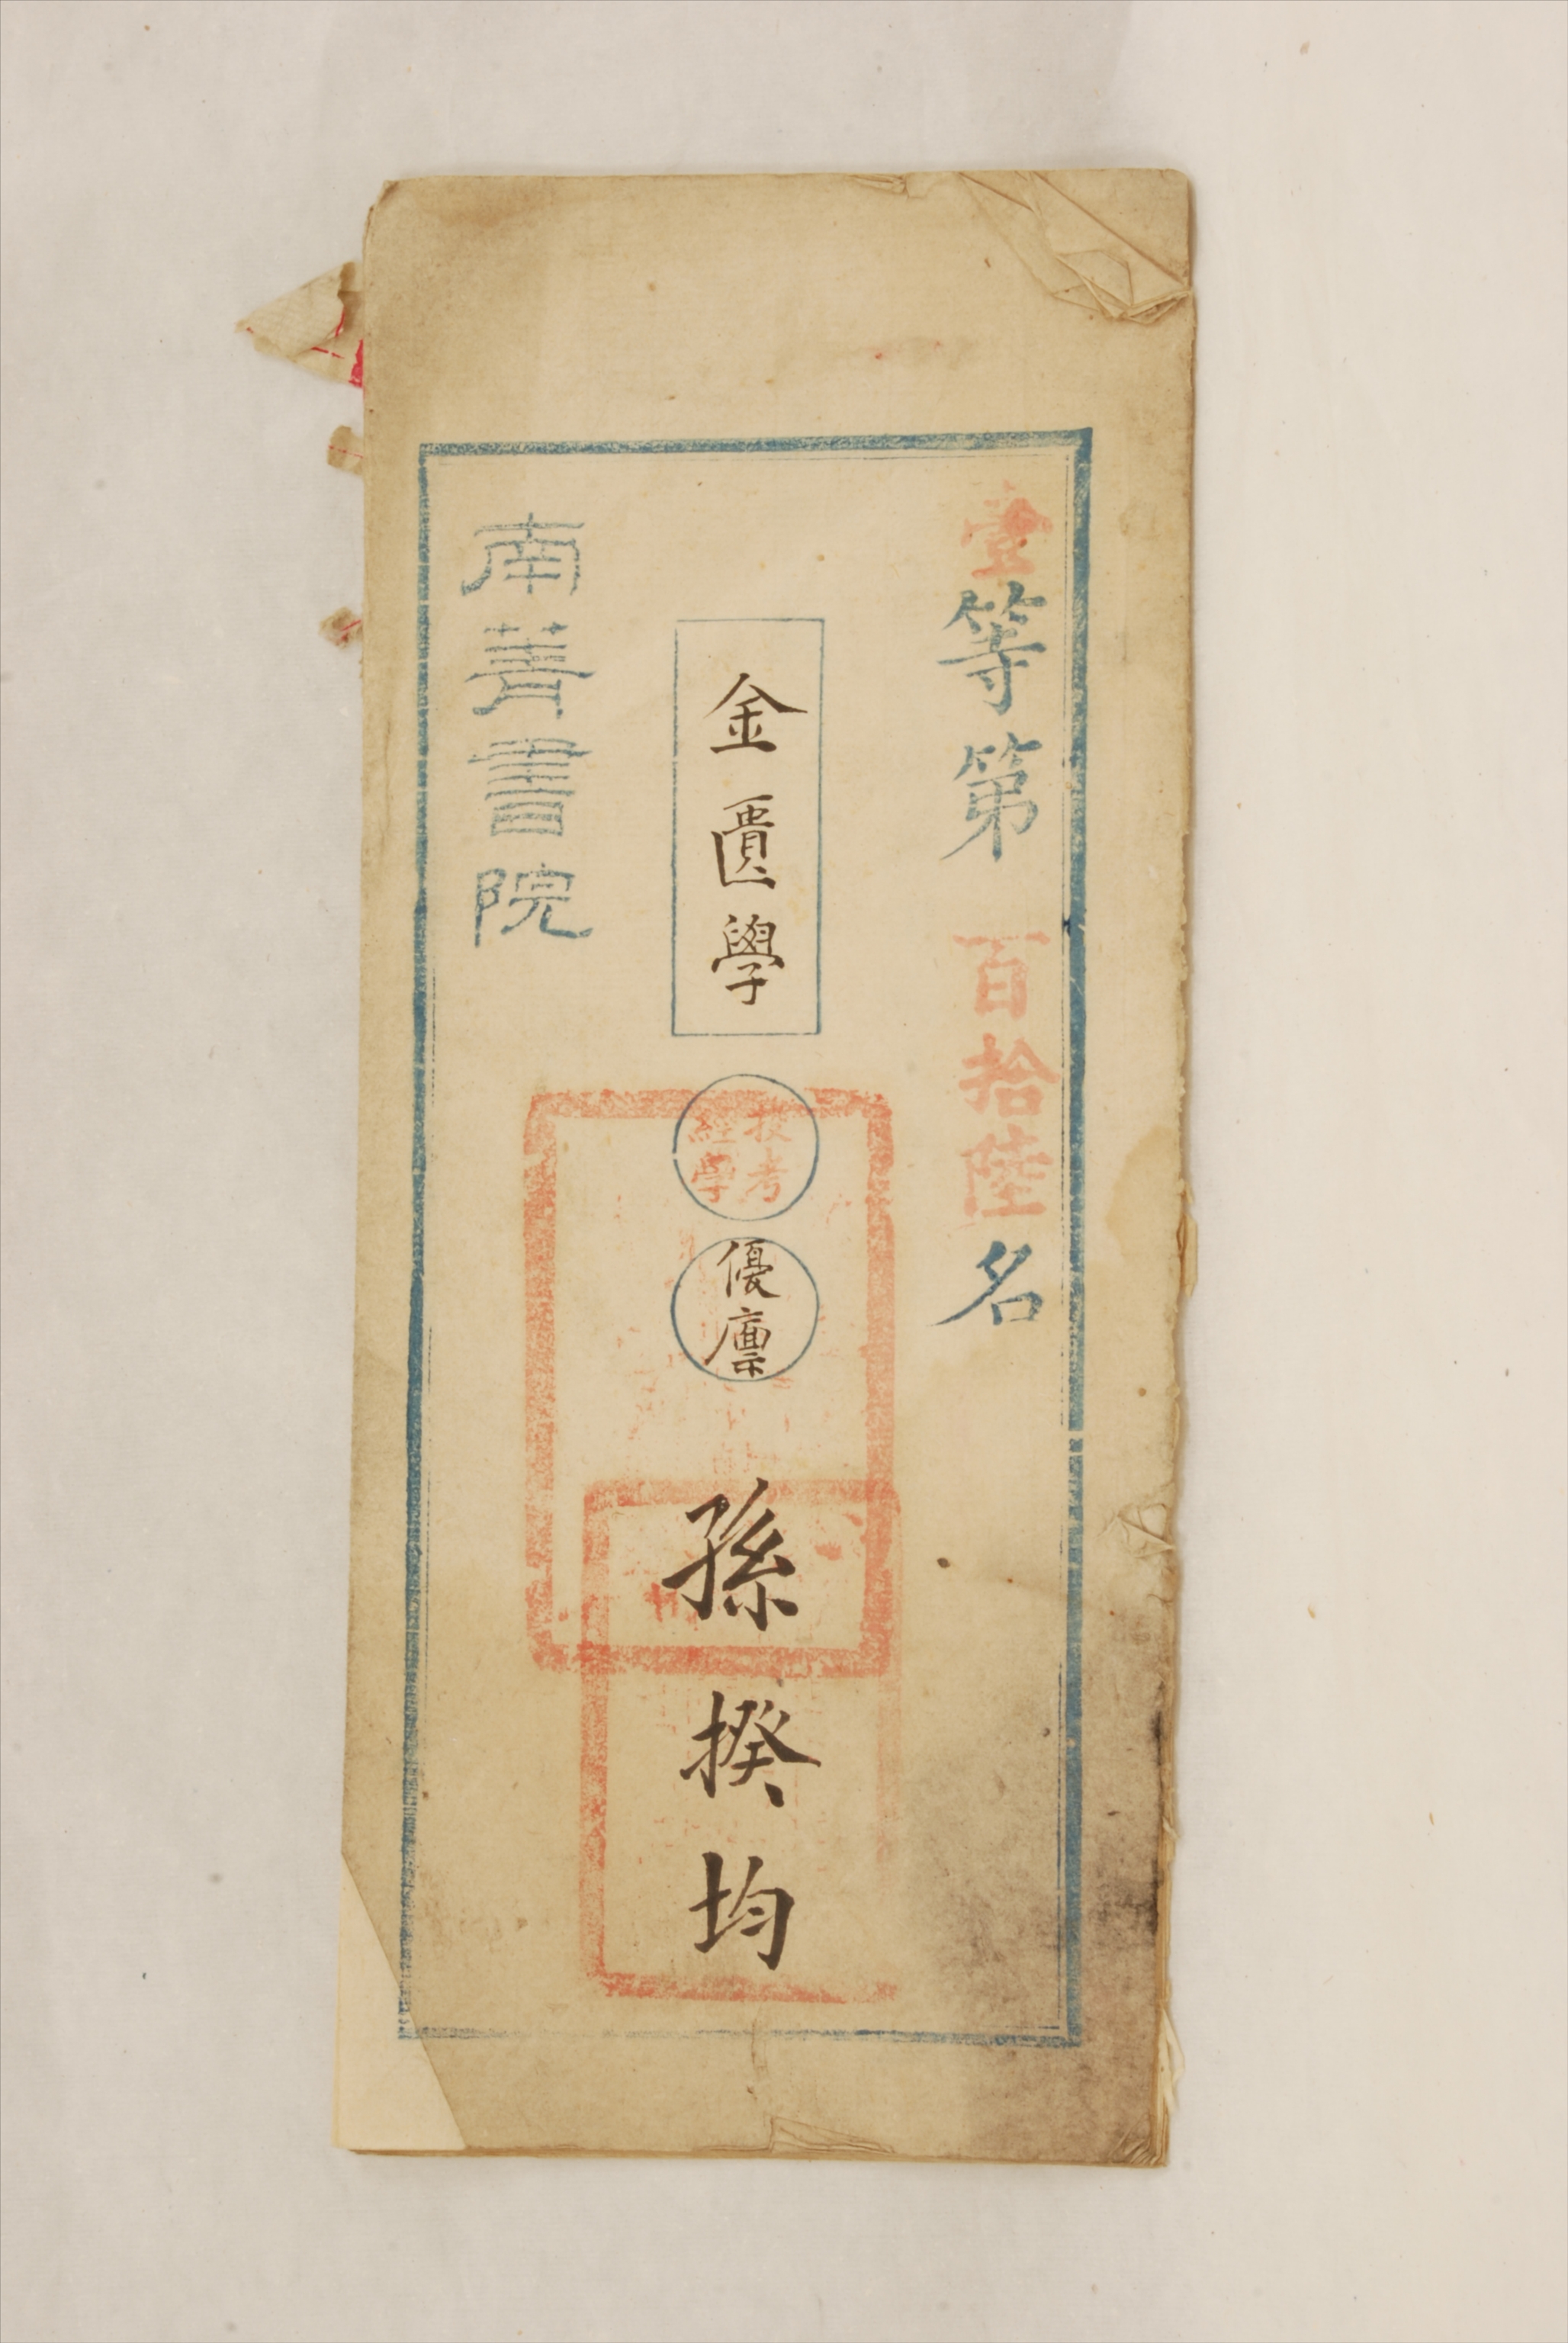 壹等第百拾陸名
金匱學
投考經學
優廩
孫揆均
南菁書院